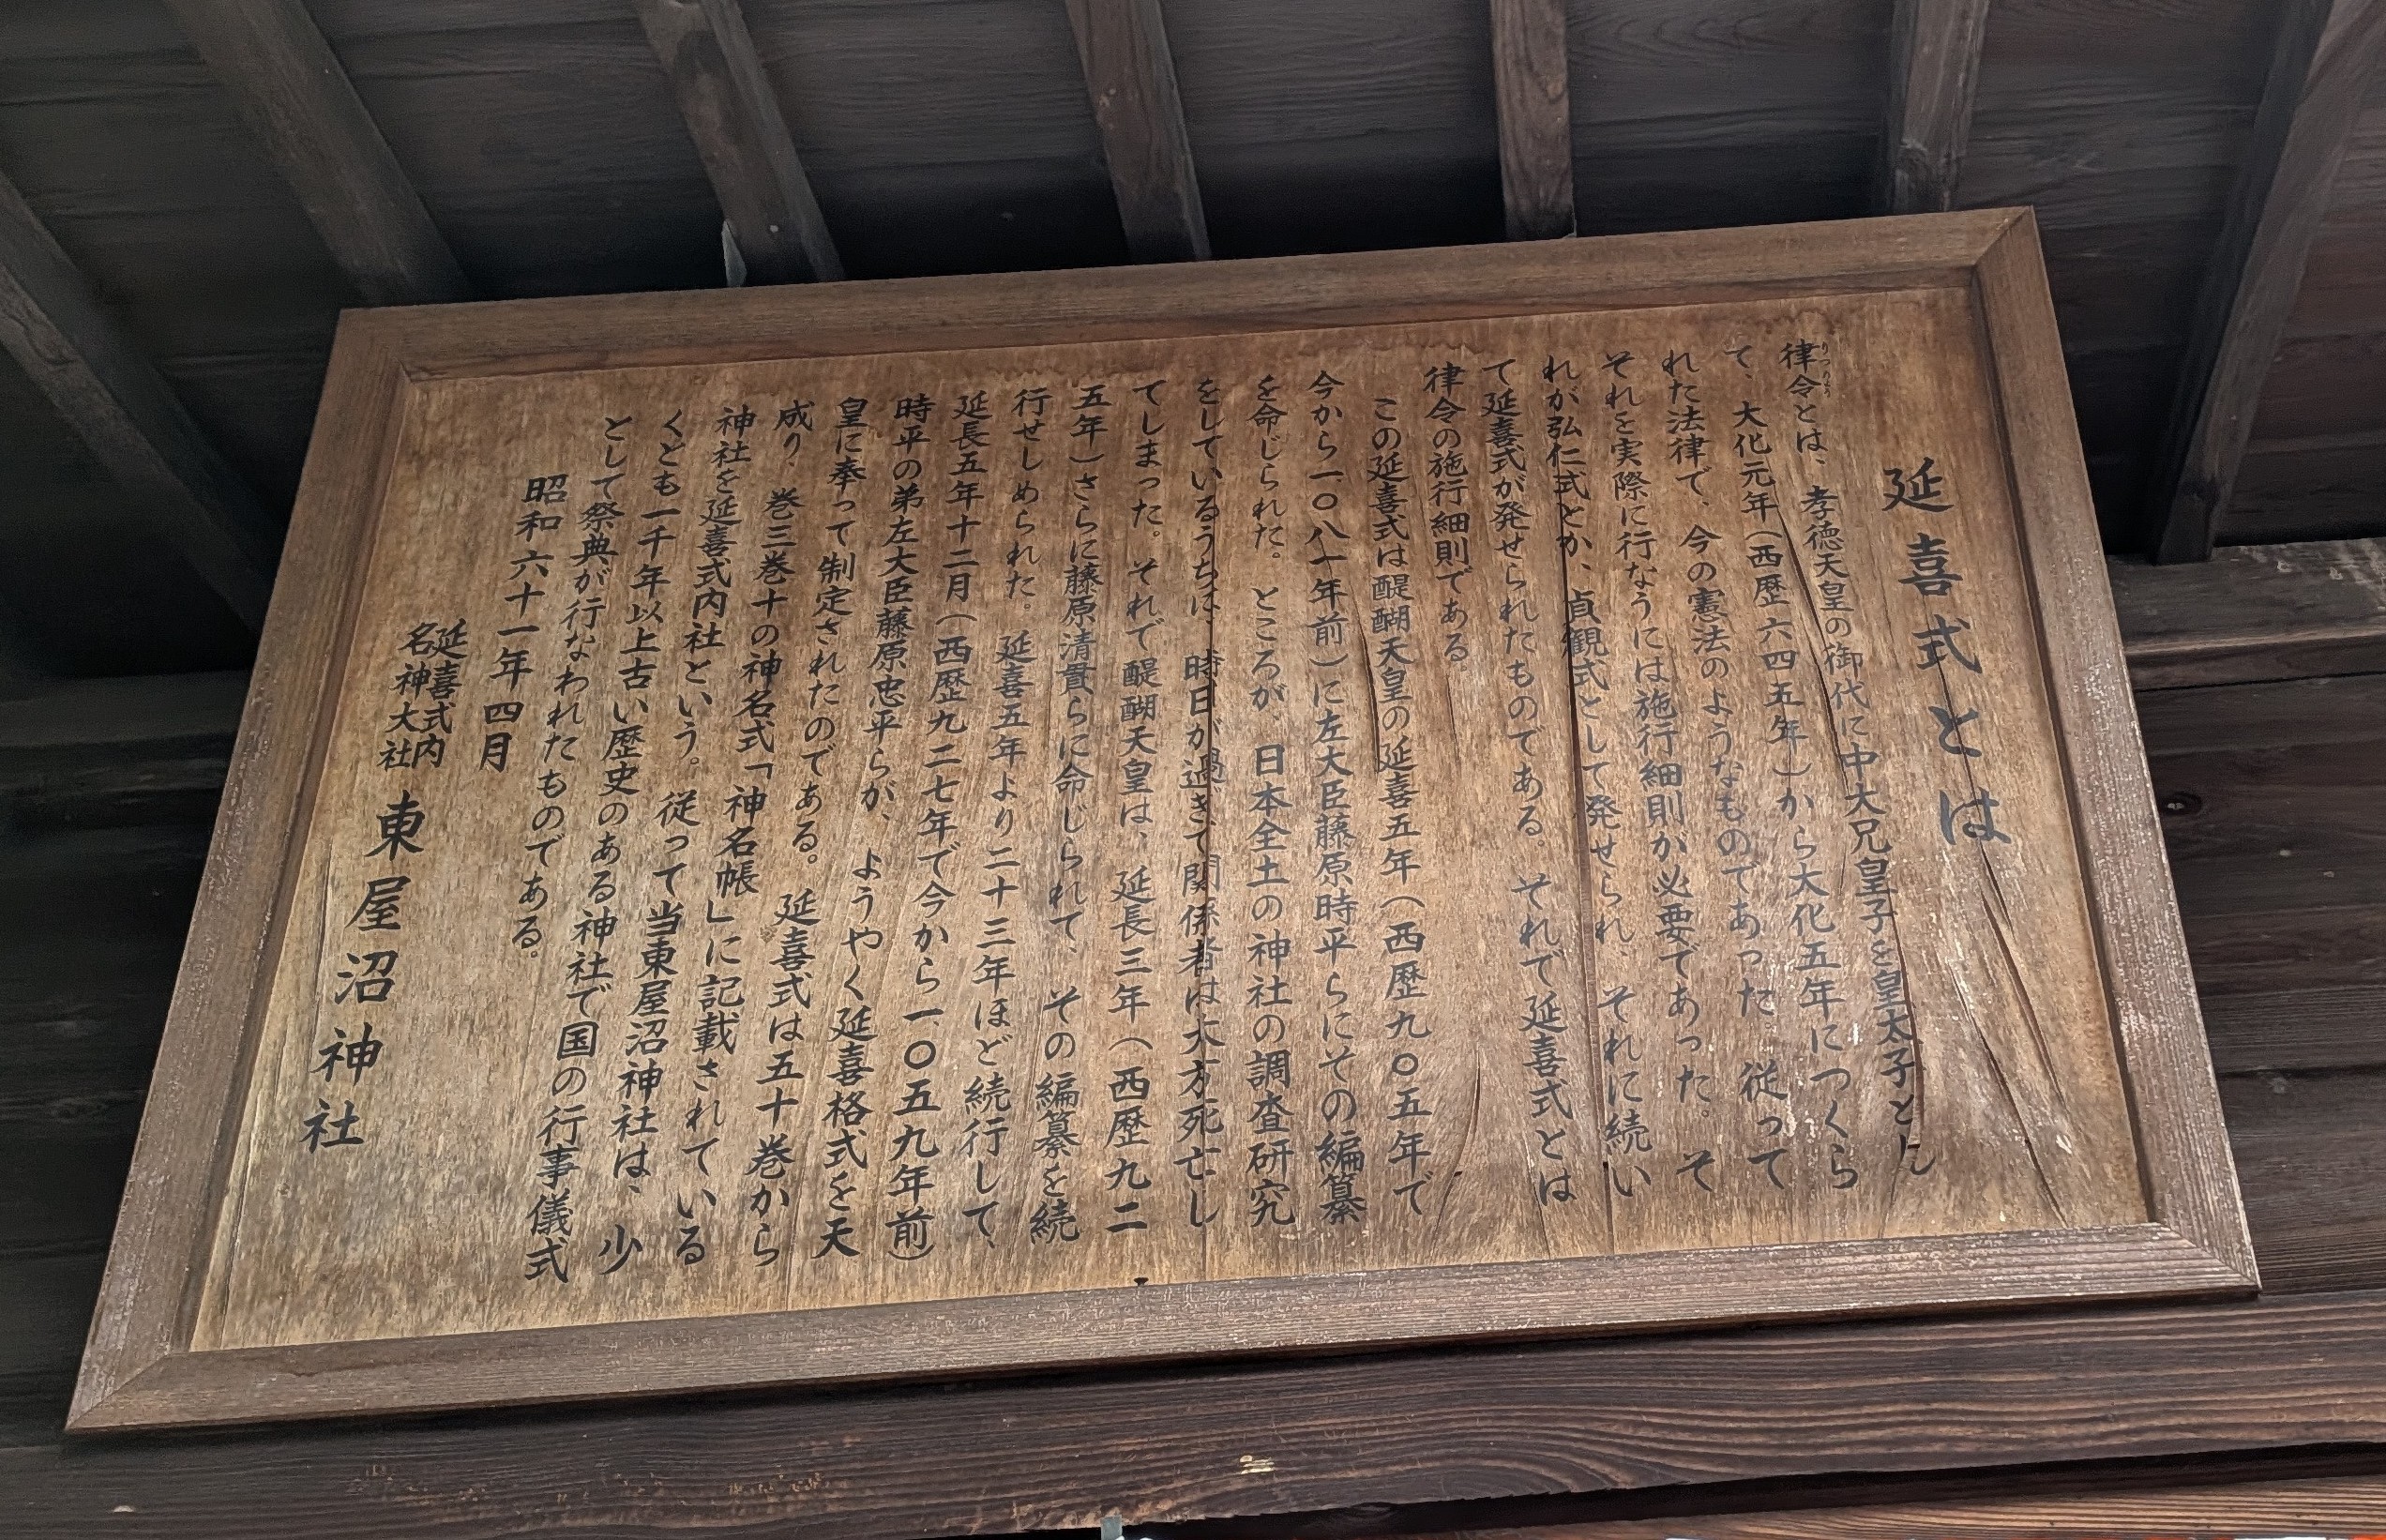 延喜式とは
律令とは、孝徳天皇の御代に中大兄皇子を皇太子とし
りつりょう
て、大化元年(西歴六四五年)から大化五年につくら
れた法律で、今の憲法のようなものであった。従って
それを実際に行なうには施行細則が必要であった。そ
れが弘仁式とか、貞観式として発せられ、それに続い
て延喜式が発せられたものである。それで延喜式とは
律令の施行細則である。
この延喜式は醍醐天皇の延喜五年(西歴九〇五年で
今から一〇八一年前)に左大臣藤原時平らにその編纂
を命じられた。ところが、日本全土の神社の調査研究
をしているうちに、時日が過ぎて関係者は大方死亡し
てしまった。それで醍醐天皇は、延長三年(西歴九二
五年)さらに藤原清貫らに命じられて、その編纂を続
行せしめられた。延喜五年より二十三年ほど続行して、
延長五年十二月(西歴九二七年で今から一〇五九年前)
時平の弟左大臣藤原忠平らが、ようやく延喜格式を天
皇に奉って制定されたのである。延喜式は五十巻から
成り、巻三巻十の神名式「神名帳」に記載されている
神社を延喜式内社という。従って当東屋沼神社は、少
くとも一千年以上古い歴史のある神社で国の行事儀式
として祭典が行なわれたものである。
昭和六十一年四月
延喜式内
名神大社
東屋沼神社